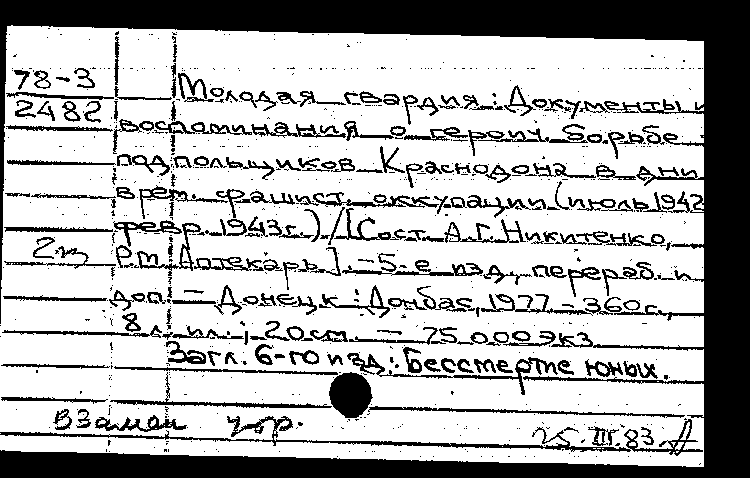 78-3
2482
Молодая гвардия: Документы и
воспоминания о героич. борьбе
подпольщиков Краснодона в дни
врем. фашист. оккупации (июль 1942
февр. 1943г.)/[Сост. А.Г. Никитенко,
2м Р.М. Аптекарь]. -5-е изд., перераб. и
доп. - Донецк: Донбас, 1977 - 360с.,
8 л. ил.; 20см. - 75.000экз.
Загл. 6-го изд.: Бессмертие юных.
Взамен утр.
25.III.83.